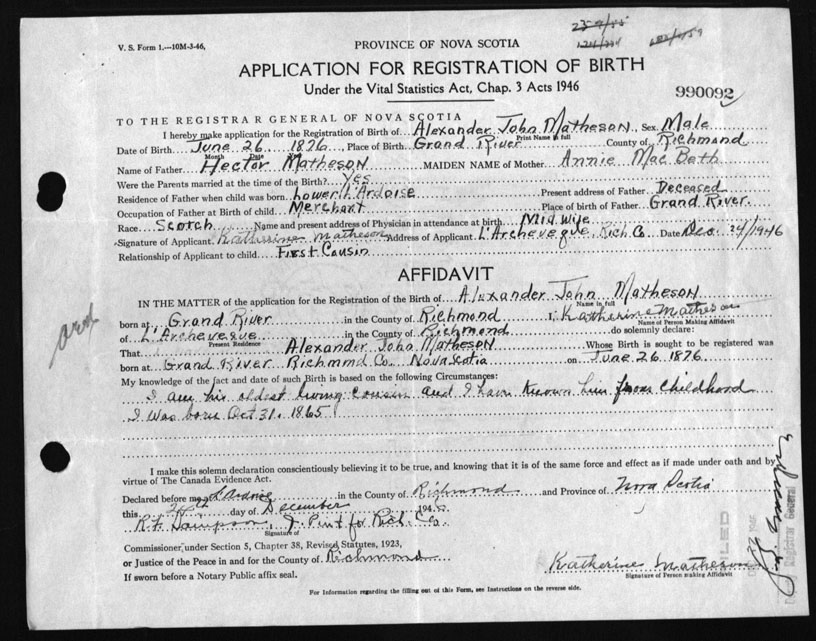 V. S. Form 1.—10M-3-46,
PROVINCE OF NOVA SCOTIA
APPLICATION FOR REGISTRATION OF BIRTH
Under the Vital Statistics Act, Chap. 3 Acts 1946
990092
TO THE REGISTRAR GENERAL OF NOVA SCOTIA
I hereby make application for the Registration of Birth of Alexander John Matheson, Sex Male
Print Name in full
Date of Birth June 26, 1876, Place of Birth Grand River County of Richmond
Month Date
Name of Father Hector Matheson MAIDEN NAME of Mother Annie MacBath
Were the Parents married at the time of the Birth? Yes
Residence of Father when child was born Lower L'Ardoise Present address of Father Deceased
Occupation of Father at Birth of child Merchant Place of birth of Father Grand River
Race Scotch Name and present address of Physician in attendance at birth Midwife
Signature of Applicant Katherine Matheson Address of Applicant L'Archeveque, Rich Co. Date Dec. 24/1946
Relationship of Applicant to child First Cousin
AFFIDAVIT
IN THE MATTER of the application for the Registration of the Birth of Alexander John Matheson
Name in full
born at Grand River in the County of Richmond I, Katherine Matheson
Name of Person Making Affidavit
of L'Archeveque in the County of Richmond do solemnly declare:
Present Residence
That Alexander John Matheson Whose Birth is sought to be registered was
born at Grand River Richmond Co. Nova Scotia on June 26 1876
My knowledge of the fact and date of such Birth is based on the following Circumstances:
I am his oldest living cousin and I have known him from childhood
I was born Oct 31. 1865
I make this solemn declaration conscientiously believing it to be true, and knowing that it is of the same force and effect as if made under oath and by
virtue of The Canada Evidence Act.
Declared before me at L'Ardoise in the County of Richmond and Province of Nova Scotia
this 24th day of December 194
R. F. Sampson, J. P. in & for Rich. Co.
Signature of
Commissioner under Section 5, Chapter 38, Revised Statutes, 1923,
or Justice of the Peace in and for the County of Richmond
If sworn before a Notary Public affix seal.
Katherine Matheson
Signature of Person making Affidavit
For Information regarding the filling out of this Form, see Instructions on the reverse side.
FILED
Registrar General